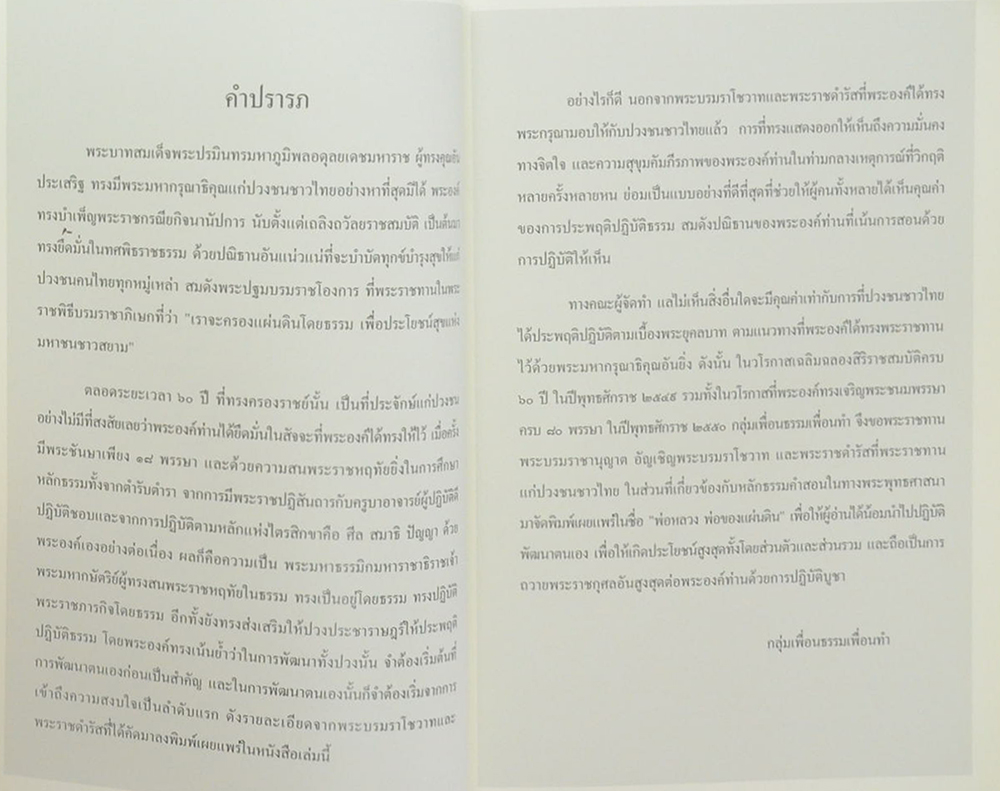 คำปรารภ
พระบาทสมเด็จพระปรมินทรมหาภูมิพลอดุลยเดชมหาราช ผู้ทรงคุณอัน
ประเสริฐ ทรงมีพระมหากรุณาธิคุณแก่ปวงชนชาวไทยอย่างหาที่สุดมิได้ พระองค์
ทรงบำเพ็ญพระราชกรณียกิจนานัปการ นับตั้งแต่เถลิงถวัลยราชสมบัติ เป็นต้นมา
ทรงยึดมั่นในทศพิธราชธรรม ด้วยปณิธานอันแน่วแน่ที่จะบำบัดทุกข์บำรุงสุขให้แก่
ปวงชนคนไทยทุกหมู่เหล่า สมดังพระปฐมบรมราชโองการ ที่พระราชทานในพระ
ราชพิธีบรมราชาภิเษกที่ว่า "เราจะครองแผ่นดินโดยธรรม เพื่อประโยชน์สุขแห่ง
มหาชนชาวสยาม"
ตลอดระยะเวลา ๖๐ ปี ที่ทรงครองราชย์นั้น เป็นที่ประจักษ์แก่ปวงชน
อย่างไม่มีที่สงสัยเลยว่าพระองค์ท่านได้ยึดมั่นในสัจจะที่พระองค์ได้ทรงให้ไว้ เมื่อครั้ง
มีพระชันษาเพียง ๑๘ พรรษา และด้วยความสนพระราชหฤทัยยิ่งในการศึกษา
หลักธรรมทั้งจากตำรับตำรา จากการมีพระราชปฏิสันถารกับครูบาอาจารย์ผู้ปฏิบัติดี
ปฏิบัติชอบและจากการปฏิบัติตามหลักแห่งไตรสิกขาคือ ศีล สมาธิ ปัญญา ด้วย
พระองค์เองอย่างต่อเนื่อง ผลก็คือความเป็น พระมหาธรรมิกมหาราชาธิราชเจ้า
พระมหากษัตริย์ผู้ทรงสนพระราชหฤทัยในธรรม ทรงเป็นอยู่โดยธรรม ทรงปฏิบัติ
พระราชภารกิจโดยธรรม อีกทั้งยังทรงส่งเสริมให้ปวงประชาราษฎร์ให้ประพฤติ
ปฏิบัติธรรม โดยพระองค์ทรงเน้นย้ำว่าในการพัฒนาทั้งปวงนั้น จำต้องเริ่มต้นที่
การพัฒนาตนเองก่อนเป็นสำคัญ และในการพัฒนาตนเองนั้นก็จำต้องเริ่มจากการ
เข้าถึงความสงบใจเป็นลำดับแรก ดังรายละเอียดจากพระบรมราโชวาทและ
พระราชดำรัสที่ได้คัดมาลงพิมพ์เผยแพร่ในหนังสือเล่มนี้
อย่างไรก็ดี นอกจากพระบรมราโชวาทและพระราชดำรัสที่พระองค์ได้ทรง
พระกรุณามอบให้กับปวงชนชาวไทยแล้ว การที่ทรงแสดงออกให้เห็นถึงความมั่นคง
ทางจิตใจ และความสุขุมคัมภีรภาพของพระองค์ท่านในท่ามกลางเหตุการณ์ที่วิกฤติ
หลายครั้งหลายหน ย่อมเป็นแบบอย่างที่ดีที่สุดที่ช่วยให้ผู้คนทั้งหลายได้เห็นคุณค่า
ของการประพฤติปฏิบัติธรรม สมดังปณิธานของพระองค์ท่านที่เน้นการสอนด้วย
การปฏิบัติให้เห็น
ทางคณะผู้จัดทำ แลไม่เห็นสิ่งอื่นใดจะมีคุณค่าเท่ากับการที่ปวงชนชาวไทย
ได้ประพฤติปฏิบัติตามเบื้องพระยุคลบาท ตามแนวทางที่พระองค์ได้ทรงพระราชทาน
ไว้ด้วยพระมหากรุณาธิคุณอันยิ่ง ดังนั้น ในวโรกาสเฉลิมฉลองสิริราชสมบัติครบ
๖๐ ปี ในปีพุทธศักราช ๒๕๔๙ รวมทั้งในวโรกาสที่พระองค์ทรงเจริญพระชนมพรรษา
ครบ ๘๐ พรรษา ในปีพุทธศักราช ๒๕๕๐ กลุ่มเพื่อนธรรมเพื่อนทำ จึงขอพระราชทาน
พระบรมราชานุญาต อัญเชิญพระบรมราโชวาท และพระราชดำรัสที่พระราชทาน
แก่ปวงชนชาวไทย ในส่วนที่เกี่ยวข้องกับหลักธรรมคำสอนในทางพระพุทธศาสนา
มาจัดพิมพ์เผยแพร่ในชื่อ "พ่อหลวง พ่อของแผ่นดิน" เพื่อให้ผู้อ่านได้น้อมนำไปปฏิบัติ
พัฒนาตนเอง เพื่อให้เกิดประโยชน์สูงสุดทั้งโดยส่วนตัวและส่วนรวม และถือเป็นการ
ถวายพระราชกุศลอันสูงสุดต่อพระองค์ท่านด้วยการปฏิบัติบูชา
กลุ่มเพื่อนธรรมเพื่อนทำ